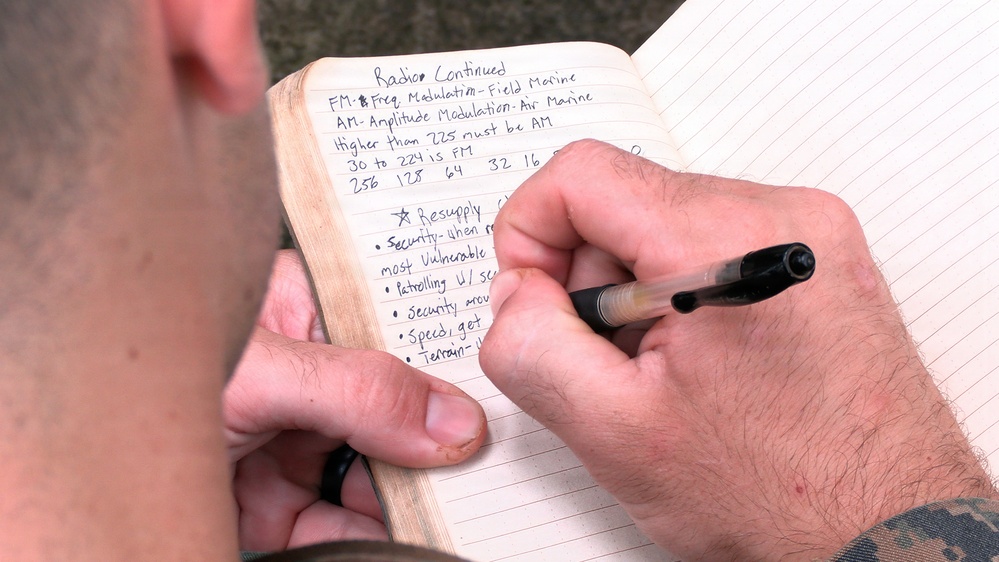 Radio Continued
FM- Freq Modulation-Field Marine
AM-Amplitude Modulation-Air Marine
Higher than 225 must be AM
30 to 224 is FM
256 128 64 32 16
☆ Resupply
• Security-when
most vulnerable
• Patrolling w/
• Security
• Speed, get
• Terrain-